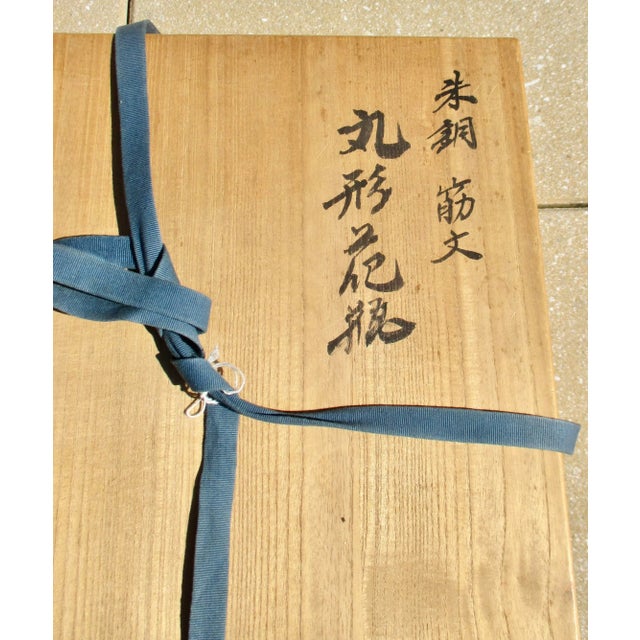 朱銅 筋文
丸形花瓶